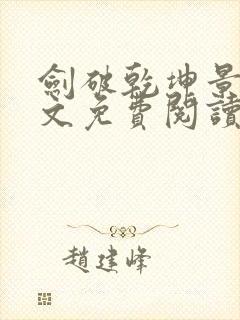 劍破乾坤景
文免費閱讀
趙建峰